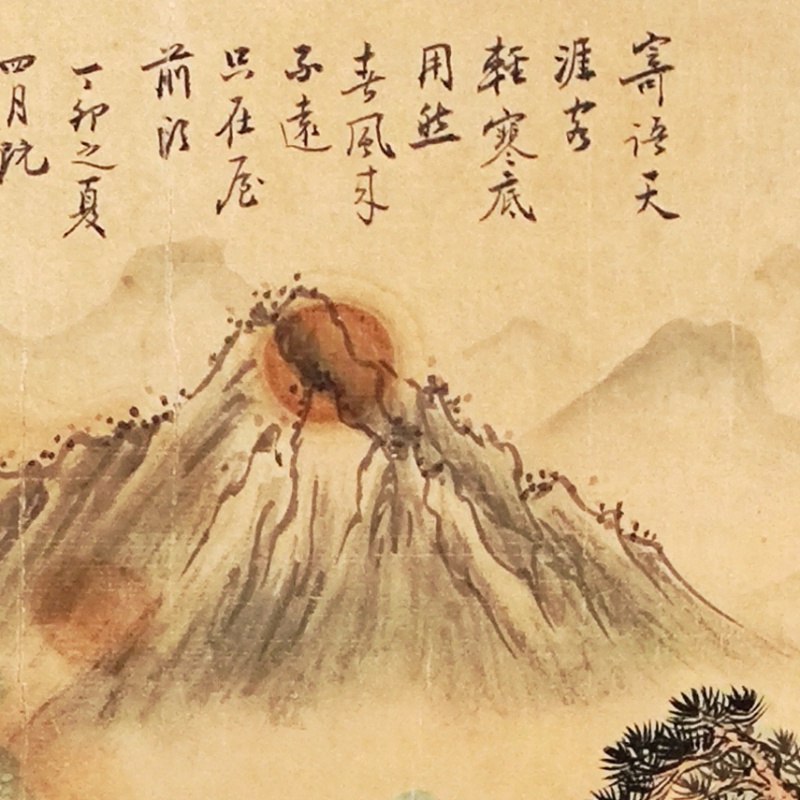 寄语天
涯客
軽寒底
用愁
春風来
不遠
只在屋
前头
丁卯之夏
四月阮